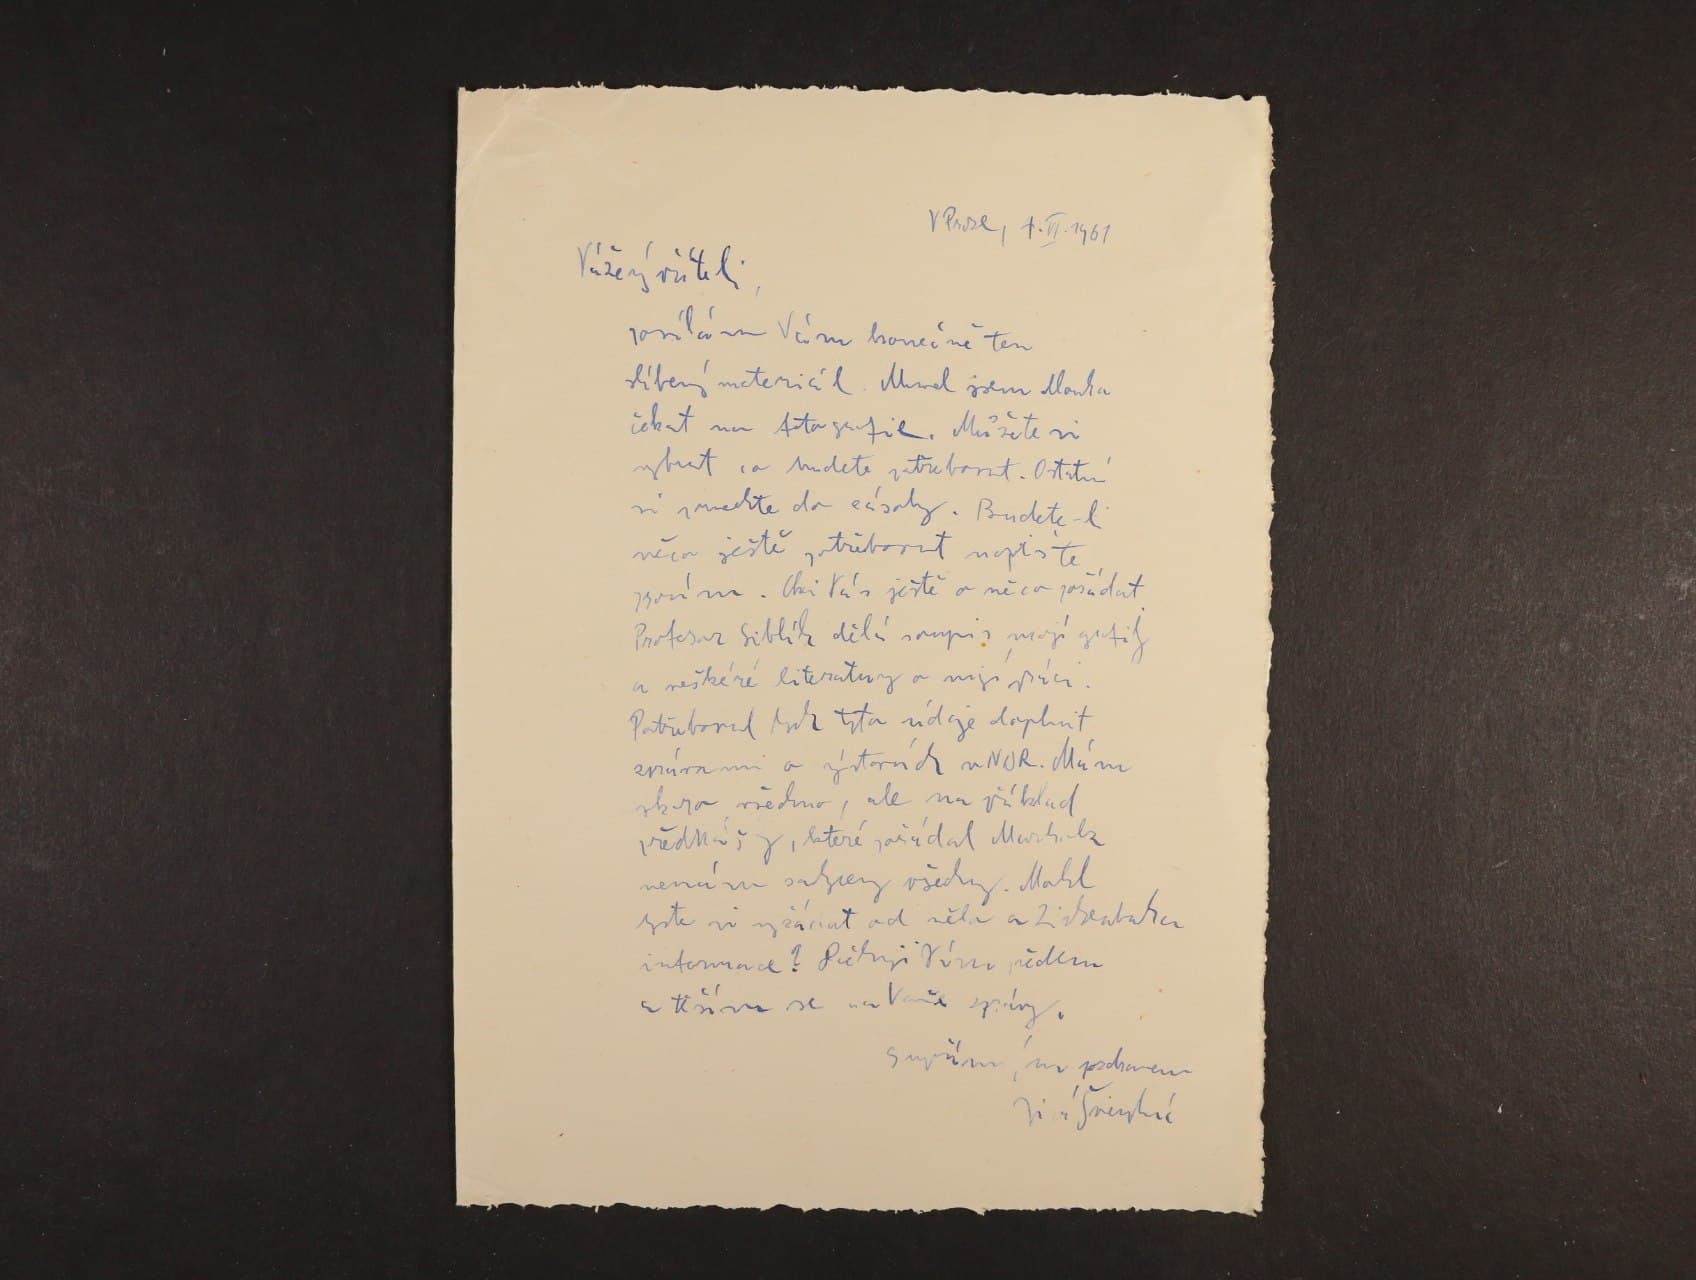 V Praze, 1.VI.1961
Vážený příteli,
posílám Vám konečně ten
slíbený materiál. Musel jsem dlouho
čekat na fotografie. Můžete si
vybrat co budete potřebovat. Ostatní
si ponechte do zásoby. Budete-li
něco ještě potřebovat napište
prosím. Chci Vás ještě o něco požádat
Profesor Siblík dělá soupis mojí grafiky
a veškéré literatury o mojí práci.
Potřeboval bych tyto údaje doplnit
zprávami o výstavách v NDR. Mám
skoro všechno, ale na příklad
přednášky, které pořádal
nemám záznamy všechny. Mohl
byste si vyžádat od něho a
informace? Děkuji Vám předem
a těším se na Vaše zprávy.
S upřímným pozdravem
Jiří Švengsbír